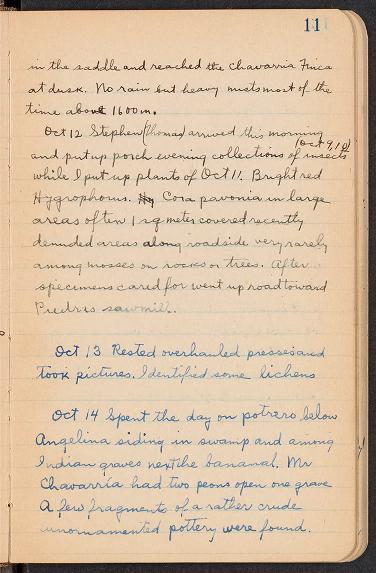 11
in the saddle and reached the Chavarria Finca
at dusk. No rain but heavy mists most of the
time above 1600m.
Oct 12 Stephen (Thomas) arrived this morning
(Oct 9, 10)
and put up porch evening collections of insects
while I put up plants of Oct 11. Bright red
Hygrophorus. Hy Cora pavonia in large
areas often 1 sq meter covered recently
denuded areas along roadside very rarely
among mosses on rocks or trees. After
specimens cared for went up road toward
Piedras sawmill.
Oct 13 Rested overhauled presses and
took pictures. Identified some lichens
Oct 14 Spent the day on potrero below
Angelina siding in swamp and among
Indian graves next the bananal. Mr
Chavarría had two peons open one grave
A few fragments of a rather crude
unornamented pottery were found.